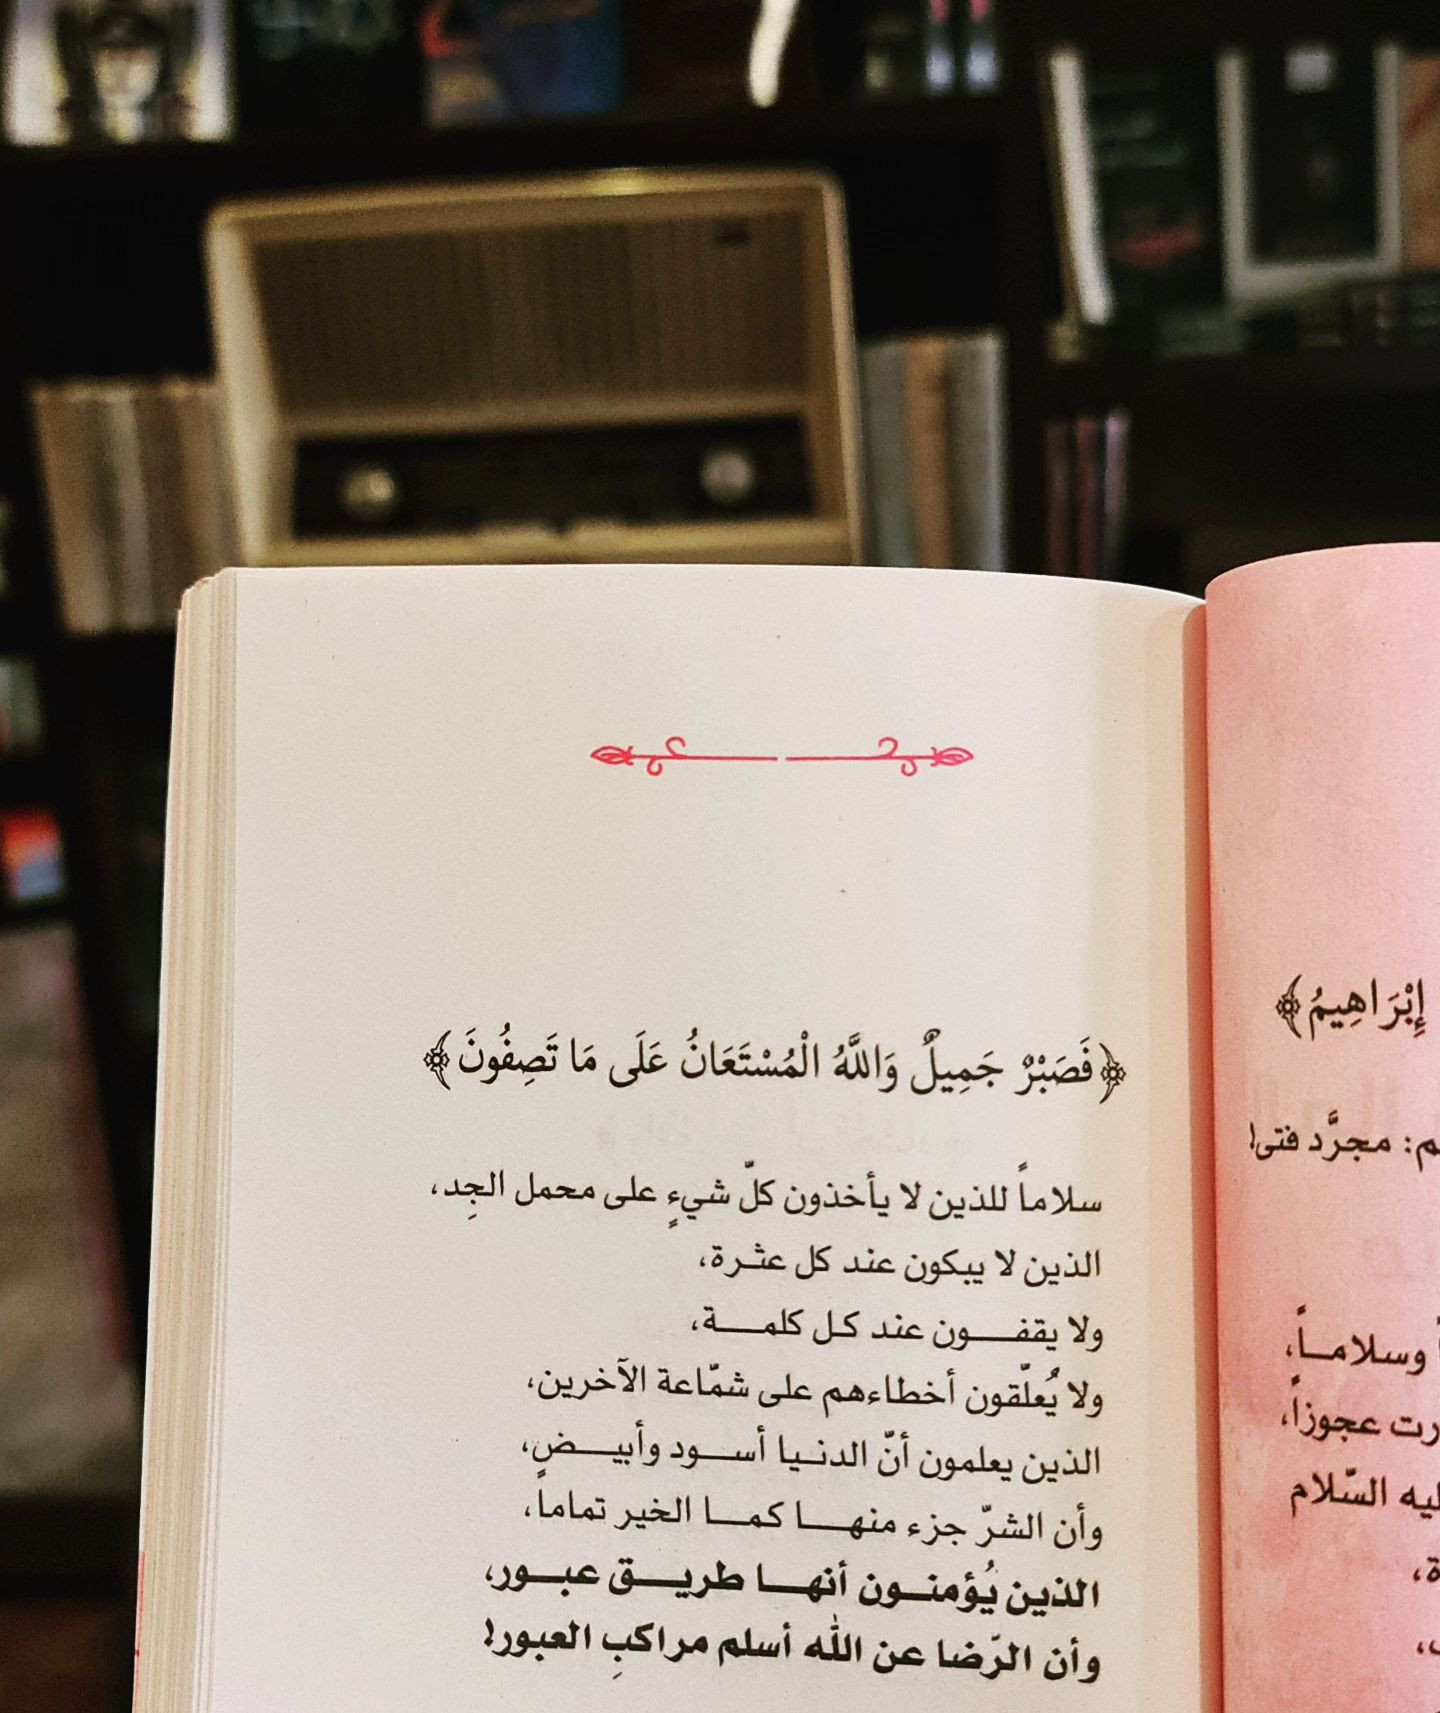 ﴿فَصَبْرٌ جَمِيلٌ وَاللَّهُ الْمُسْتَعَانُ عَلَى مَا تَصِفُونَ﴾
سلاماً للذين لا يأخذون كلّ شيءٍ على محمل الجِد،
الذين لا يبكون عند كل عثـرة،
ولا يقفـــون عند كـل كلمـــة،
ولا يُعلّقون أخطاءهم على شمّاعة الآخرين،
الذين يعلمون أنّ الدنـيا أســود وأبيـــض،
وأن الشرّ جزء منهـــا كمــا الخير تماماً،
الذين يُؤمنــون أنهــا طريـــق عبــور،
وأن الرّضا عن الله أسلم مراكبِ العبور!
إِبْرَاهِيمُ﴾
مجرَّد فتى!
وسلامــاً،
عجوزاً،
السّلام